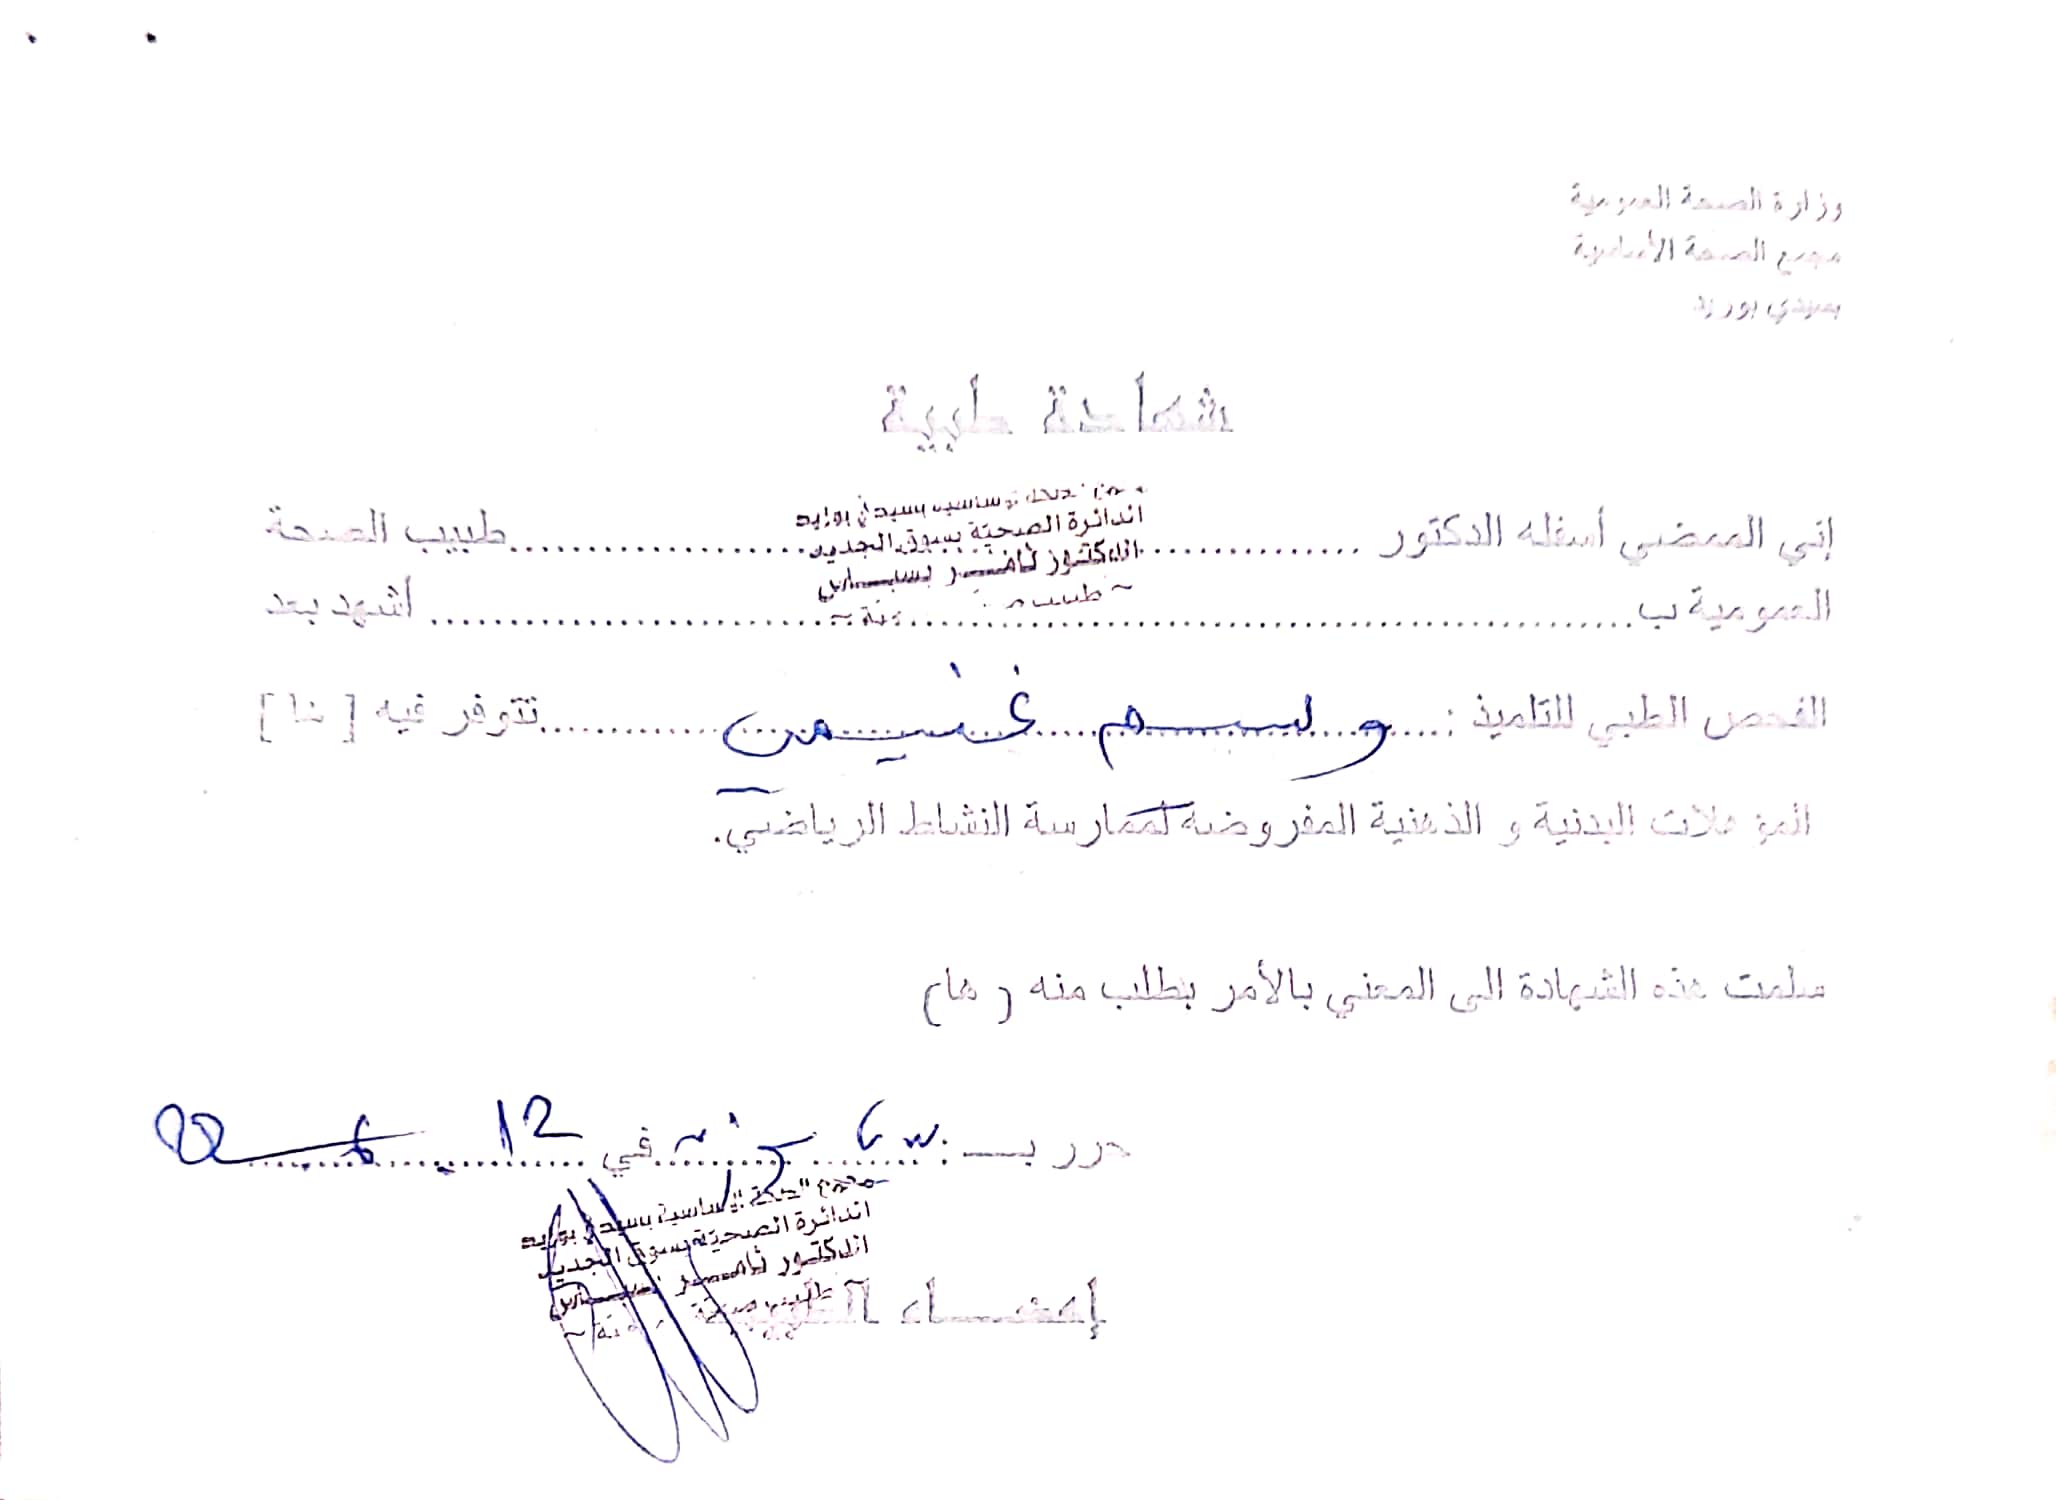 وزارة الصحة العمومية
مجمع الصحة الأساسية
بسيدي بوزيد
شهادة طبية
بسيدي بوزيد
الدائرة الصحية بسوق الجديد
الدكتور
إني الممضي أسفله الدكتور .............. طبيب الصحة
العمومية ب .............. أشهد بعد
الفحص الطبي للتلميذ : وسيم غنيمي تتوفر فيه [ ها ]
المؤهلات البدنية و الذهنية المفروضة لممارسة النشاط الرياضي.
سلمت هذه الشهادة الى المعني بالأمر بطلب منه ( ها)
حرر بـ : في 12
مجمع الصحة الأساسية بسيدي بوزيد
الدائرة الصحية بسوق الجديد
الدكتور
إمضاء الطبيب